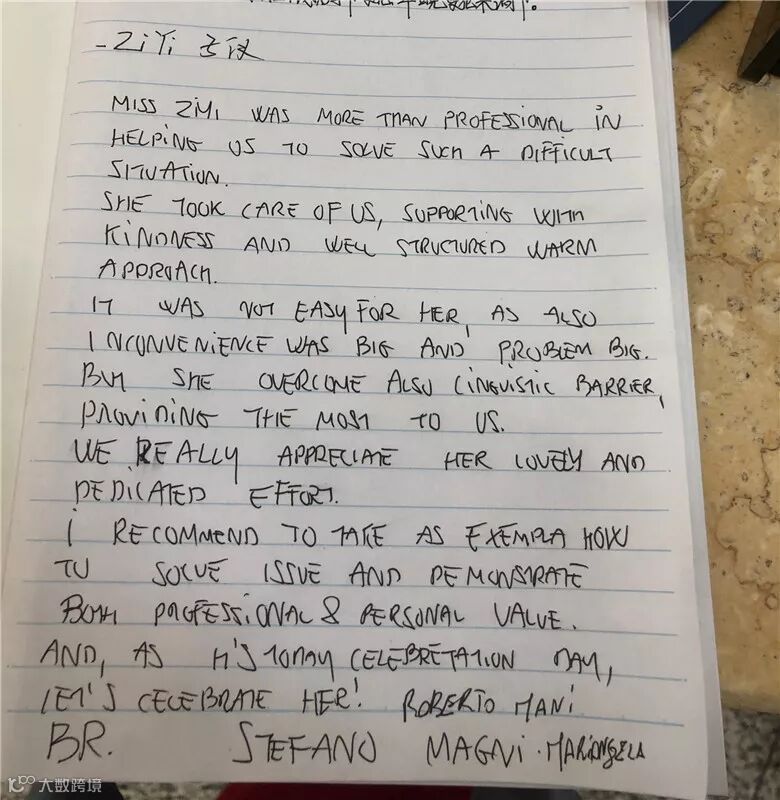 - ZiYi 子议
MISS ZIYI WAS MORE THAN PROFESSIONAL IN
HELPING US TO SOLVE SUCH A DIFFICULT
SITUATION.
SHE TOOK CARE OF US, SUPPORTING WITH
KINDNESS AND WELL STRUCTURED WARM
APPROACH.
IT WAS NOT EASY FOR HER, AS ALSO
INCONVENIENCE WAS BIG AND PROBLEM BIG.
BUT SHE OVERCOME ALSO LINGUISTIC BARRIER,
PROVIDING THE MOST TO US.
WE REALLY APPRECIATE HER LOVELY AND
DEDICATED EFFORT.
i RECOMMEND TO TAKE AS EXEMPLA HOW
TO SOLVE ISSUE AND DEMONSTRATE
BOTH PROFESSIONAL & PERSONAL VALUE.
AND, AS IT'S TODAY CELEBRETATION DAY,
LET'S CELEBRATE HER! ROBERTO MANI
BR. STEFANO MAGNI. MARIANGELA
大数跨境